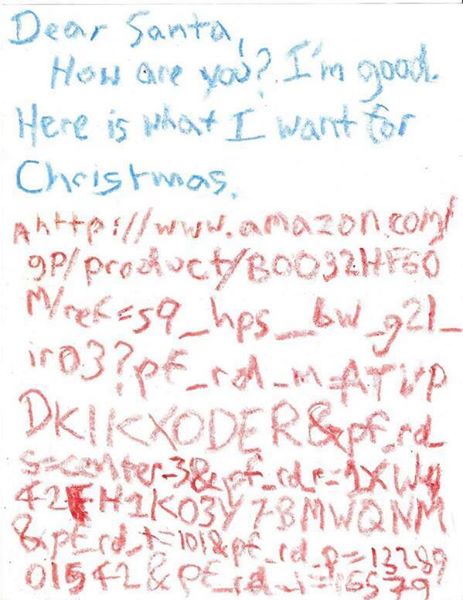 Dear Santa,
How are you? I'm good.
Here is what I want for
Christmas.
A http://www.amazon.com/
gp/product/B0032HF60
M/ref=s9_hps_bw_g21_
ir03?pf_rd_m=ATVP
DKIKX0DER&pf_rd_
s=center-3&pf_rd_r=1XWM
42FH1K03Y78MWQNM
&pf_rd_t=101&pf_rd_p=13289
01542&pf_rd_i=16579